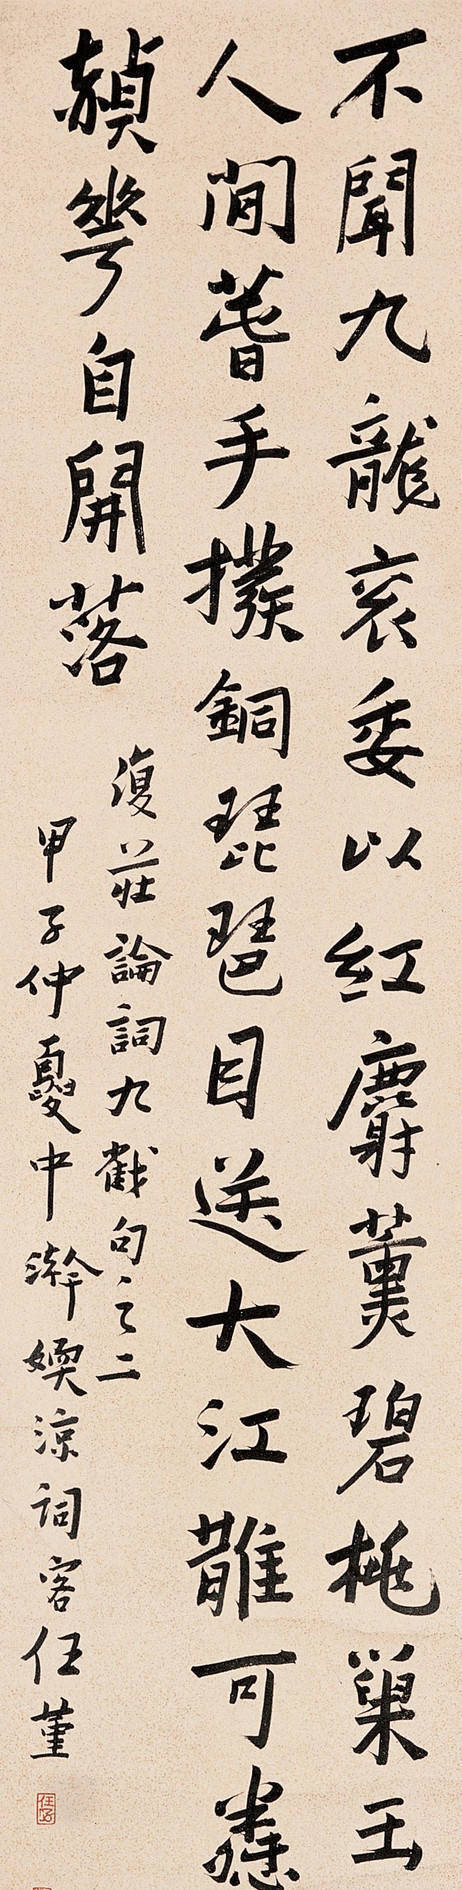 不聞九龍哀委以紅麝薰碧桃巢玉
人間著手撥銅琵琶目送大江可
赬華自開落
復莊論詞九截句之二
甲子仲夏中澣媆涼詞客任堇